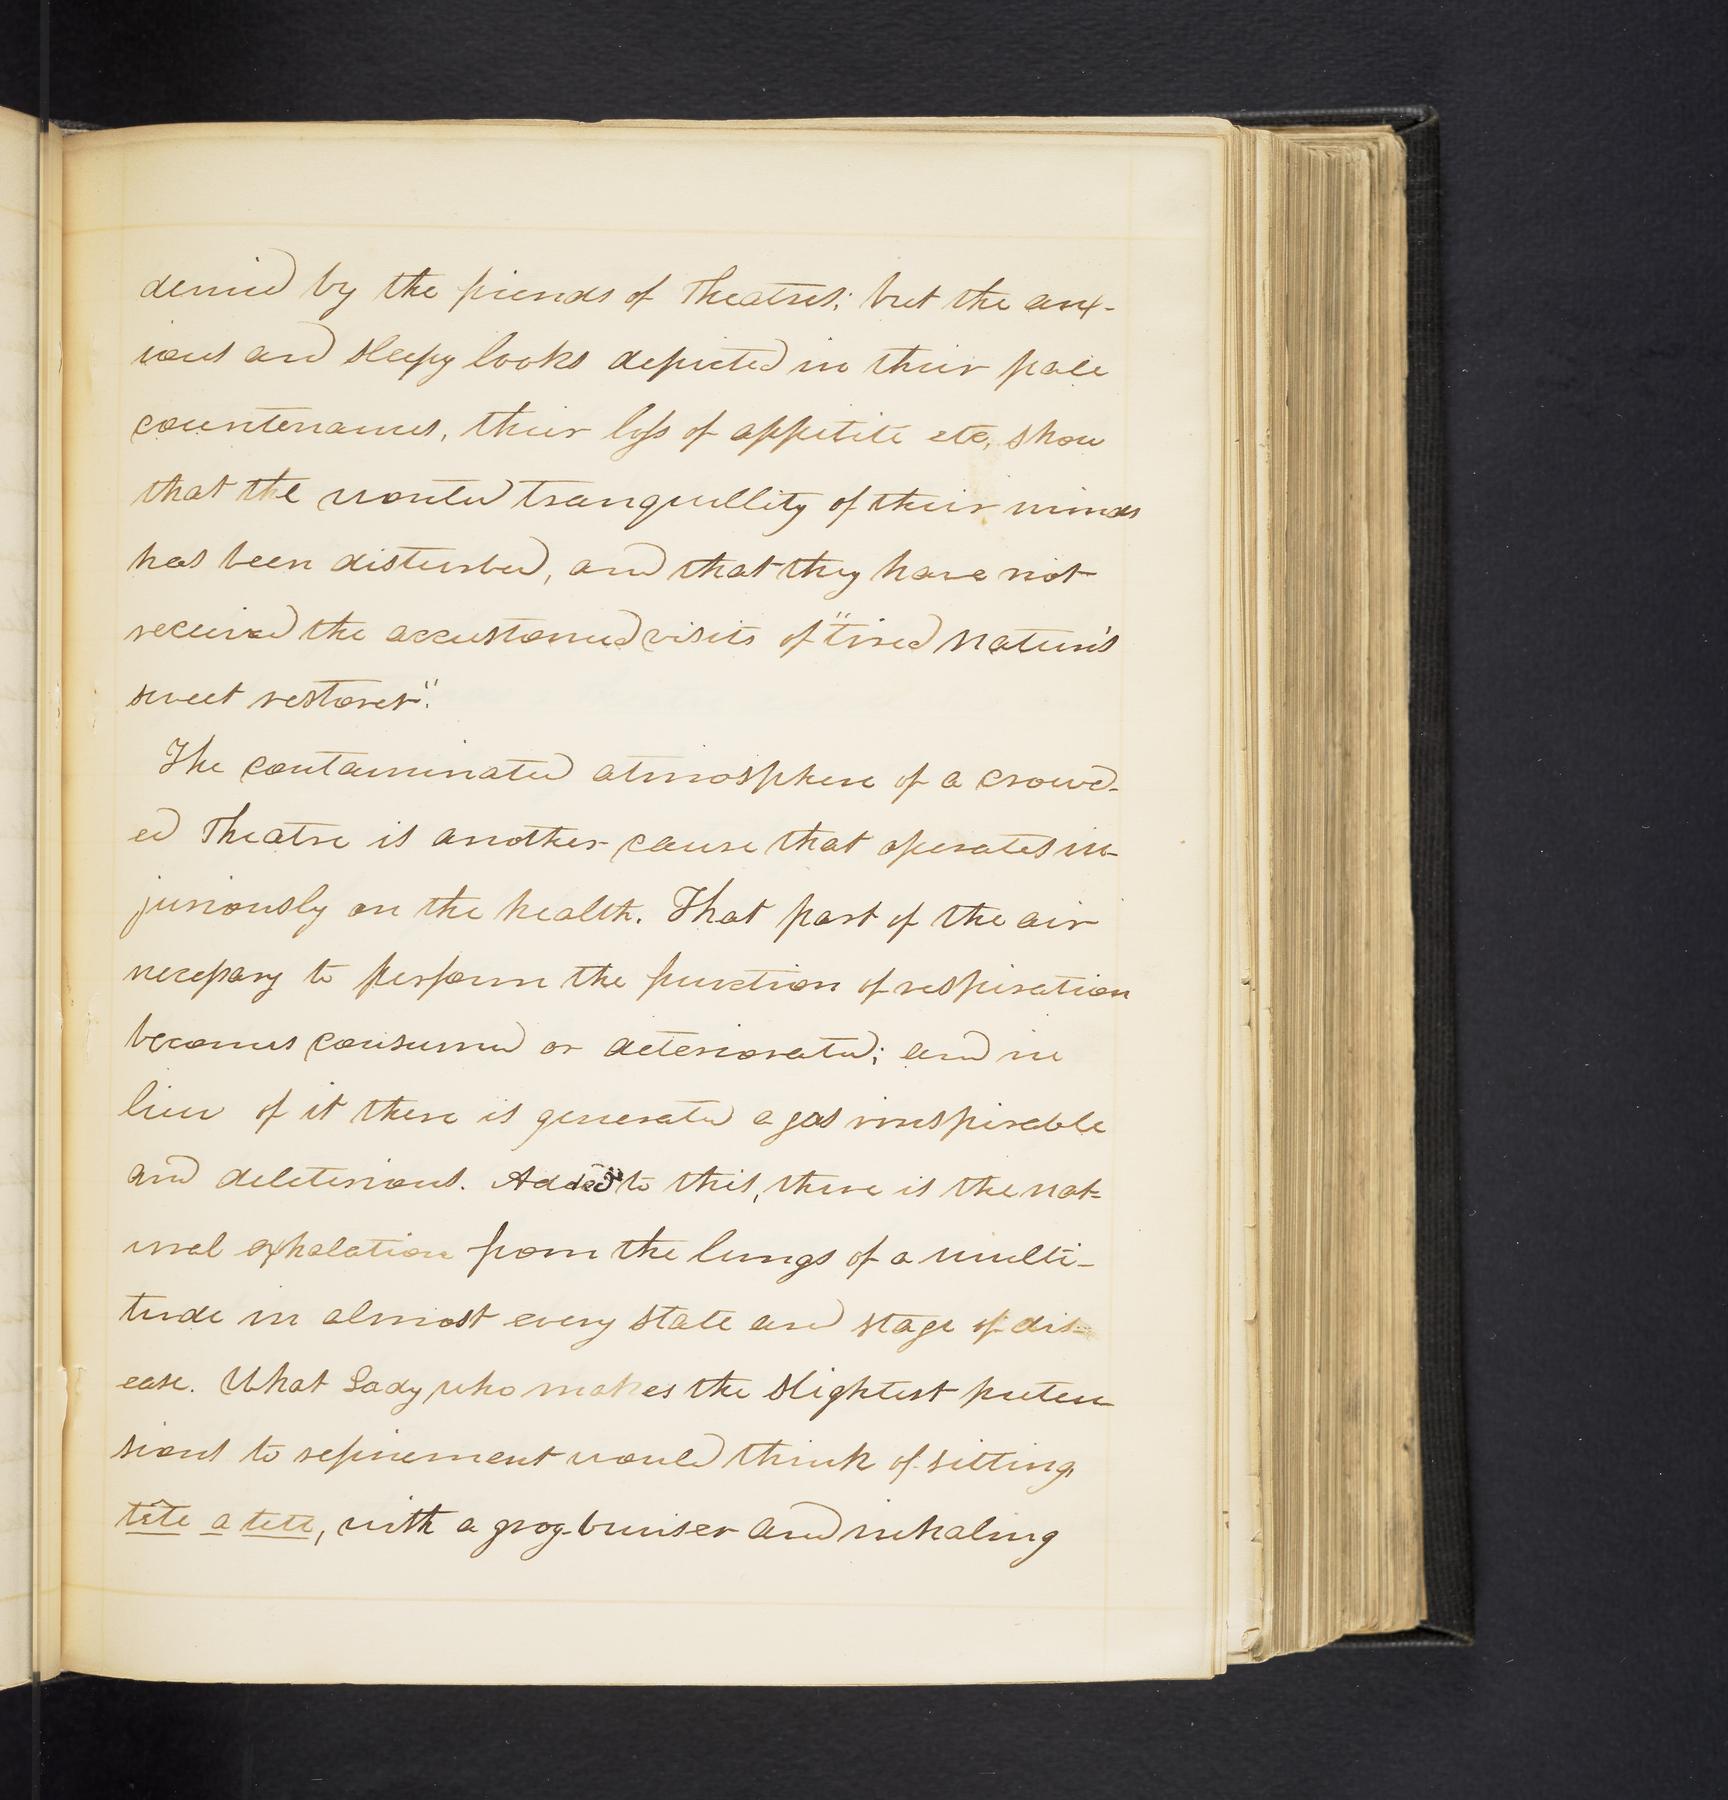 denied by the friends of Theatres; but the anx-
ious and sleepy looks depicted in their pale
countenances, their loss of appetite etc, show
that the wonted tranquillity of their minds
has been disturbed, and that they have not
received the accustomed visits of "tired Nature's
sweet restorer".
The contaminated atmosphere of a crowd-
ed Theatre is another cause that operates in-
juriously on the health. That part of the air
necessary to perform the function of respiration
becomes consumed or deteriorated; and in
lieu of it there is generated a gas irrespirable
and deleterious. Added to this, there is the nat-
ural exhalation from the lungs of a multi-
tude in almost every state and stage of dis-
ease. What Lady who makes the slightest preten-
sions to refinement would think of sitting
tête a tete, with a grog-bruiser and inhaling